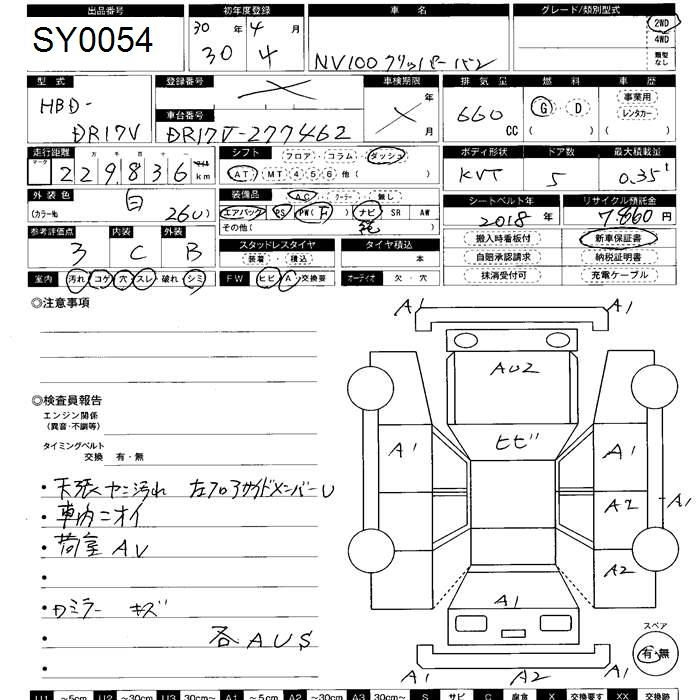 出品番号 初年度登録 車名 グレード/類別型式
SY0054 30年 4月 2WD
30 4 NV100クリッパーバン 4WD
類型なし
型式 登録番号 車検期限 排気量 燃料 車歴
HBD- 年 660 CC (G・D) 事業用
DR17V 車台番号 月 レンタカー
DR17V-277462
走行距離 シフト フロア・コラム・ダッシュ ボディ形状 ドア数 最大積載量
マーク 十万千百十一 マイル
229,836 km AT・MT 4 5 6 他( ) KVT 5 0.35t
外装色 装備品 AC・クーラー・無し シートベルト年 リサイクル預託金
白 エアバック PS PW(F) ナビ SR AW 2018年 7,860円
(カラー№ 26U) その他( )
参考評価点 内装 外装 スタッドレスタイヤ タイヤ積込 搬入時看板付 新車保証書
3 C B 装着・積込 本 自賠承認請求 納税証明書
室内 汚れ コゲ 穴 スレ 破れ シミ FW ヒビ A 交換要 オーディオ 欠・穴 抹消受付可 充電ケーブル
◎注意事項
A1 A1
AU2
◎検査員報告
エンジン関係
(異音・不調等)
タイミングベルト
交換 有・無
A1 ヒビ A1
・天張ヤニ汚れ 左フロアサイドメンバーU
A2 A1
・車内ニオイ
・荷室 AU
A2
・Dミラー キズ
A1
・各AUS
スペア
有・無
A1 A2 A1
U1 ～5cm U2 ～30cm U3 30cm～ A1 ～5cm A2 ～30cm A3 30cm～ S サビ C 腐食 X 交換要す XX 交換跡